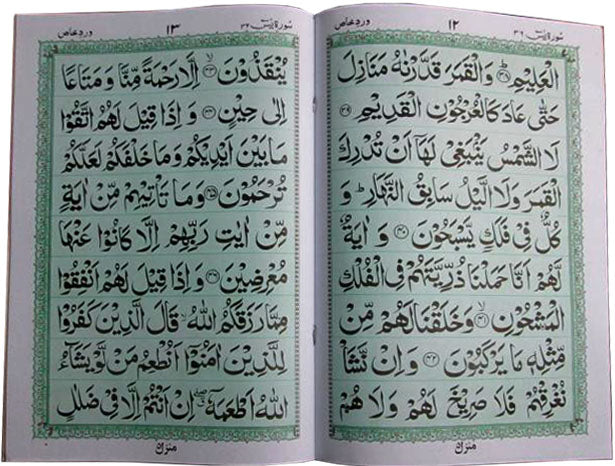 سورة يٰسٓ ٣٦ ١٢ وردِ خاص
الْعَلِيْمِ ؕ﴿٣٨﴾ وَالْقَمَرَ قَدَّرْنٰهُ مَنَازِلَ
حَتّٰى عَادَ كَالْعُرْجُوْنِ الْقَدِيْمِ ﴿٣٩﴾
لَا الشَّمْسُ يَنْۢبَغِيْ لَهَاۤ اَنْ تُدْرِكَ
الْقَمَرَ وَلَا الَّيْلُ سَابِقُ النَّهَارِ ؕ وَ
كُلٌّ فِيْ فَلَكٍ يَّسْبَحُوْنَ ﴿٤٠﴾ وَاٰيَةٌ
لَّهُمْ اَنَّا حَمَلْنَا ذُرِّيَّتَهُمْ فِي الْفُلْكِ
الْمَشْحُوْنِ ۙ﴿٤١﴾ وَخَلَقْنَا لَهُمْ مِّنْ
مِّثْلِهٖ مَا يَرْكَبُوْنَ ﴿٤٢﴾ وَاِنْ نَّشَاْ
نُغْرِقْهُمْ فَلَا صَرِيْخَ لَهُمْ وَلَا هُمْ
منزل
سورة يٰسٓ ٣٦ ١٣ وردِ خاص
يُنْقَذُوْنَ ۙ﴿٤٣﴾ اِلَّا رَحْمَةً مِّنَّا وَمَتَاعًا
اِلٰى حِيْنٍ ﴿٤٤﴾ وَاِذَا قِيْلَ لَهُمُ اتَّقُوْا
مَا بَيْنَ اَيْدِيْكُمْ وَمَا خَلْفَكُمْ لَعَلَّكُمْ
تُرْحَمُوْنَ ﴿٤٥﴾ وَمَا تَاْتِيْهِمْ مِّنْ اٰيَةٍ
مِّنْ اٰيٰتِ رَبِّهِمْ اِلَّا كَانُوْا عَنْهَا
مُعْرِضِيْنَ ﴿٤٦﴾ وَاِذَا قِيْلَ لَهُمْ اَنْفِقُوْا
مِمَّا رَزَقَكُمُ اللّٰهُ ۙ قَالَ الَّذِيْنَ كَفَرُوْا
لِلَّذِيْنَ اٰمَنُوْۤا اَنُطْعِمُ مَنْ لَّوْ يَشَآءُ
اللّٰهُ اَطْعَمَهٗۤ ۖ اِنْ اَنْتُمْ اِلَّا فِيْ ضَلٰلٍ
منزل